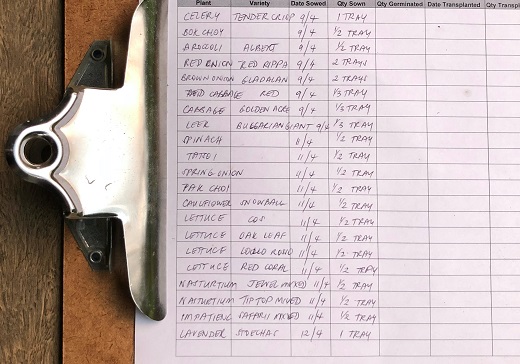 Plant Variety Date Sowed Qty Sown Qty Germinated Date Transplanted Qty Transpl
CELERY TENDER CRISP 9/4 1 TRAY
BOK CHOY 9/4 1/2 TRAY
BROCCOLI ALBERT 9/4 1/2 TRAY
RED ONION RED RIPPA 9/4 2 TRAYS
BROWN ONION GLADALAN 9/4 2 TRAYS
RED CABBAGE RED 9/4 1/3 TRAY
CABBAGE GOLDEN ACRE 9/4 1/3 TRAY
LEEK BULGARIAN GIANT 9/4 1/3 TRAY
SPINACH 11/4 1/2 TRAY
TATSOI 11/4 1/2 TRAY
SPRING ONION 11/4 1/2 TRAY
PAK CHOI 11/4 1/2 TRAY
CAULIFLOWER SNOWBALL 11/4 1/2 TRAY
LETTUCE COS 11/4 1/2 TRAY
LETTUCE OAK LEAF 11/4 1/2 TRAY
LETTUCE LOLLO ROSSO 11/4 1/2 TRAY
LETTUCE RED CORAL 11/4 1/2 TRAY
NASTURTIUM JEWEL MIXED 11/4 1/2 TRAY
NASTURTIUM TIP TOP MIXED 11/4 1/2 TRAY
IMPATIENS SAFARII MIXED 11/4 1/2 TRAY
LAVENDER STOECHAS 12/4 1 TRAY